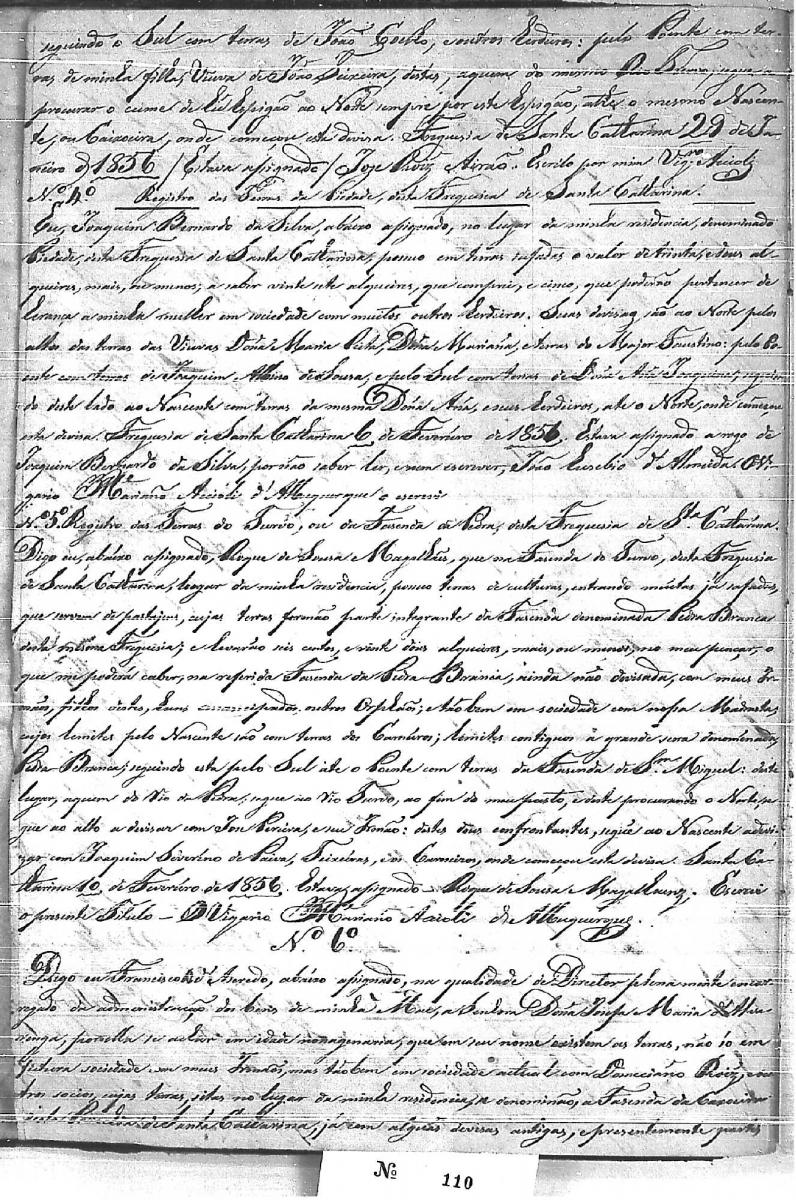 seguindo o Sul com terras de João Coelho, e outros Erdeiros: pelo Poente com ter-
ras de minha filha, Viuva de João Teixeira, destes, aquem do mesmo Rio Turvo, segue a
procurar o cume de Espigão ao Norte sempre por este Espigão, athe o mesmo Nascen-
te, ou Caixoeira, onde começou esta devisa. Freguesia de Santa Catharina 29 de Ja-
neiro d 1856 / Estava assignado / Jose Airão. Escrito por mim Vigr.o Accioli
N.o 4.o Registro das Terras da Piedade, desta Freguisia de Santa Catharina.
Eu, Joaquim Bernardo da Silva, abaixo assignado, no lugar da minha residencia, denominado
Piedade, desta Freguesia de Santa Catharina, possuo em terras safadas o valor de trinta, e dous al-
queires, mais, ou menos; a saber vinte sete alqueires, que comprei, e cinco, que poderão pertencer de
erança a minha mulher em sociedade com muitos outros Erdeiros. Suas devisas são ao Norte pelos
altos das terras das Viuvas Dona Maria Dona Mariana, e terras do Major Faustino: pelo Po-
ente com terras de Joaquim de Sousa, e pelo Sul com terras de Dona Ana Joaquina, seguin-
do deste lado ao Nascente com terras da mesma Dona Ana, e seus Erdeiros, ate o Norte, onde começou
esta devisa. Freguesia de Santa Catharina 6 de Fevereiro de 1856. Estava assignado a rogo de
Joaquim Bernardo da Silva, por não saber ler, e nem escrever, João Eusebio d' Almeida. O Vi-
gario Mariano Accioli d' Albuquerque o escrevi
N.o 5.o Registro das Terras do Turvo, ou da Fasenda da Pedra, desta Freguesia de S.ta Catharina.
Digo eu, abaixo assignado, Roque de Sousa e Magalhães, que na Fasenda do Turvo, desta Freguesia
de Santa Catharina, lugar da minha residencia, possuo terras de culturas, entrando muitas já safadas,
que servem de pastejos, cujas terras formão parte integrante da Fazenda denominada Pedra Branca
desta mesma Freguesia; e levarão seis centos, e vinte dois alqueires, mais, ou menos, no meu pençar, o
que me poderá caber, na referida Fasenda da Pedra Branca, ainda não devisada, com meus Ir-
mãos, filhos destes, huns emancipados, outros Orphãos; e tãobem em sociedade com nossa Madrasta,
cujos lemites pelo Nascente são com terras dos Carneiros; lemites contiguos á grande serra denomenada
Pedra Branca; seguindo esta pelo Sul ate o Poente com terras da Fasenda de S.m Miguel: deste
lugar, aquem do Rio da Pedra, segue ao Rio Turvo, ao fim do meu pasto, e deste procurando o Norte, se-
gue ao alto a devisar com Jose Pereira, e seu Irmão: destes dous confrontantes, segue ao Nascente a devi-
zar com Joaquim Severino de Paiva, Teixeiras, e os Carneiros, onde começou esta devisa. Santa Ca-
tharina 10 de Fevereiro de 1856. Estava assignado - Roque de Sousa Magalhaens. Escrevi
o presente Titulo - O Vigario Mariano Accioli d' Albuquerque
N.o 6.o
Digo eu Francisco d' Azeredo, abaixo assignado, na qualidade de Director plenamente encar-
regado da administração dos bens de minha Mae, a Senhora Dona Josefa Maria d'Alva-
renga, por ella se achar em idade nonagenaria, que em seu nome existem as terras, não só em
futura sociedade com meus Irmãos, mas tãobem em sociedade actual com Domiciano e ou-
tros socios, cujas terras, sitas no lugar da minha residencia, se denominão, a Fasenda da Caxoeira
desta Freguesia de Santa Catharina, já com algũas devisas antigas, e presentemente partes
N.o 110